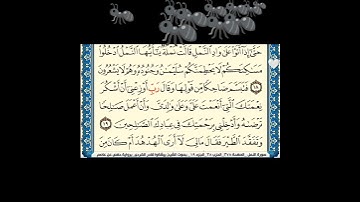 حَتَّىٰ إِذَا أَتَوْا عَلَىٰ وَادِ النَّمْلِ قَالَتْ نَمْلَةٌ يَا أَيُّهَا النَّمْلُ ادْخُلُوا
مَسَاكِنَكُمْ لَا يَحْطِمَنَّكُمْ سُلَيْمَانُ وَجُنُودُهُ وَهُمْ لَا يَشْعُرُونَ
۝١٨ فَتَبَسَّمَ ضَاحِكًا مِّن قَوْلِهَا وَقَالَ رَبِّ أَوْزِعْنِي أَنْ أَشْكُرَ
نِعْمَتَكَ الَّتِي أَنْعَمْتَ عَلَيَّ وَعَلَىٰ وَالِدَيَّ وَأَنْ أَعْمَلَ صَالِحًا
تَرْضَاهُ وَأَدْخِلْنِي بِرَحْمَتِكَ فِي عِبَادِكَ الصَّالِحِينَ ۝١٩
وَتَفَقَّدَ الطَّيْرَ فَقَالَ مَا لِيَ لَا أَرَى الْهُدْهُدَ أَمْ كَانَ مِنَ
سورة النمل